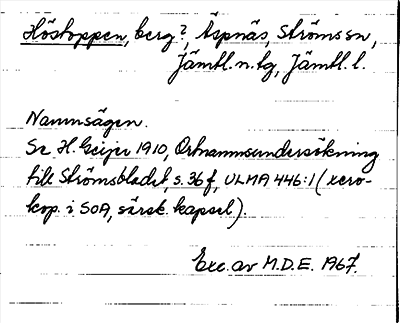 Höstoppen, berg?, Äspnäs, Ströms sn,
Jämtl. n. kg, Jämtl. l.
Namnsägen.
Se H. Geijer 1910, Ortnamnsundersökning
till Strömsbladet, s. 36 f, ULMA 446:1 (xero-
kop. i SOA, särsk. kapsel).
Exc. av M.D.E. 1967.